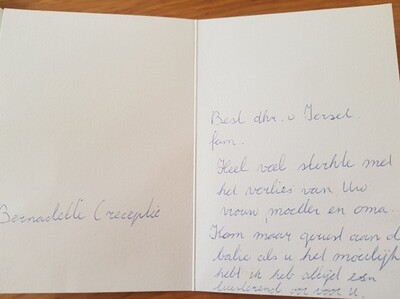 Bernadette (receptie
Best dhr. v Iersel.
fam.
Heel veel sterkte met
het verlies van Uw
vrouw, moeder en oma.
Kom maar gerust aan d
balie als u het moeilijk
hebt ik heb altijd een
luisterend oor voor u.